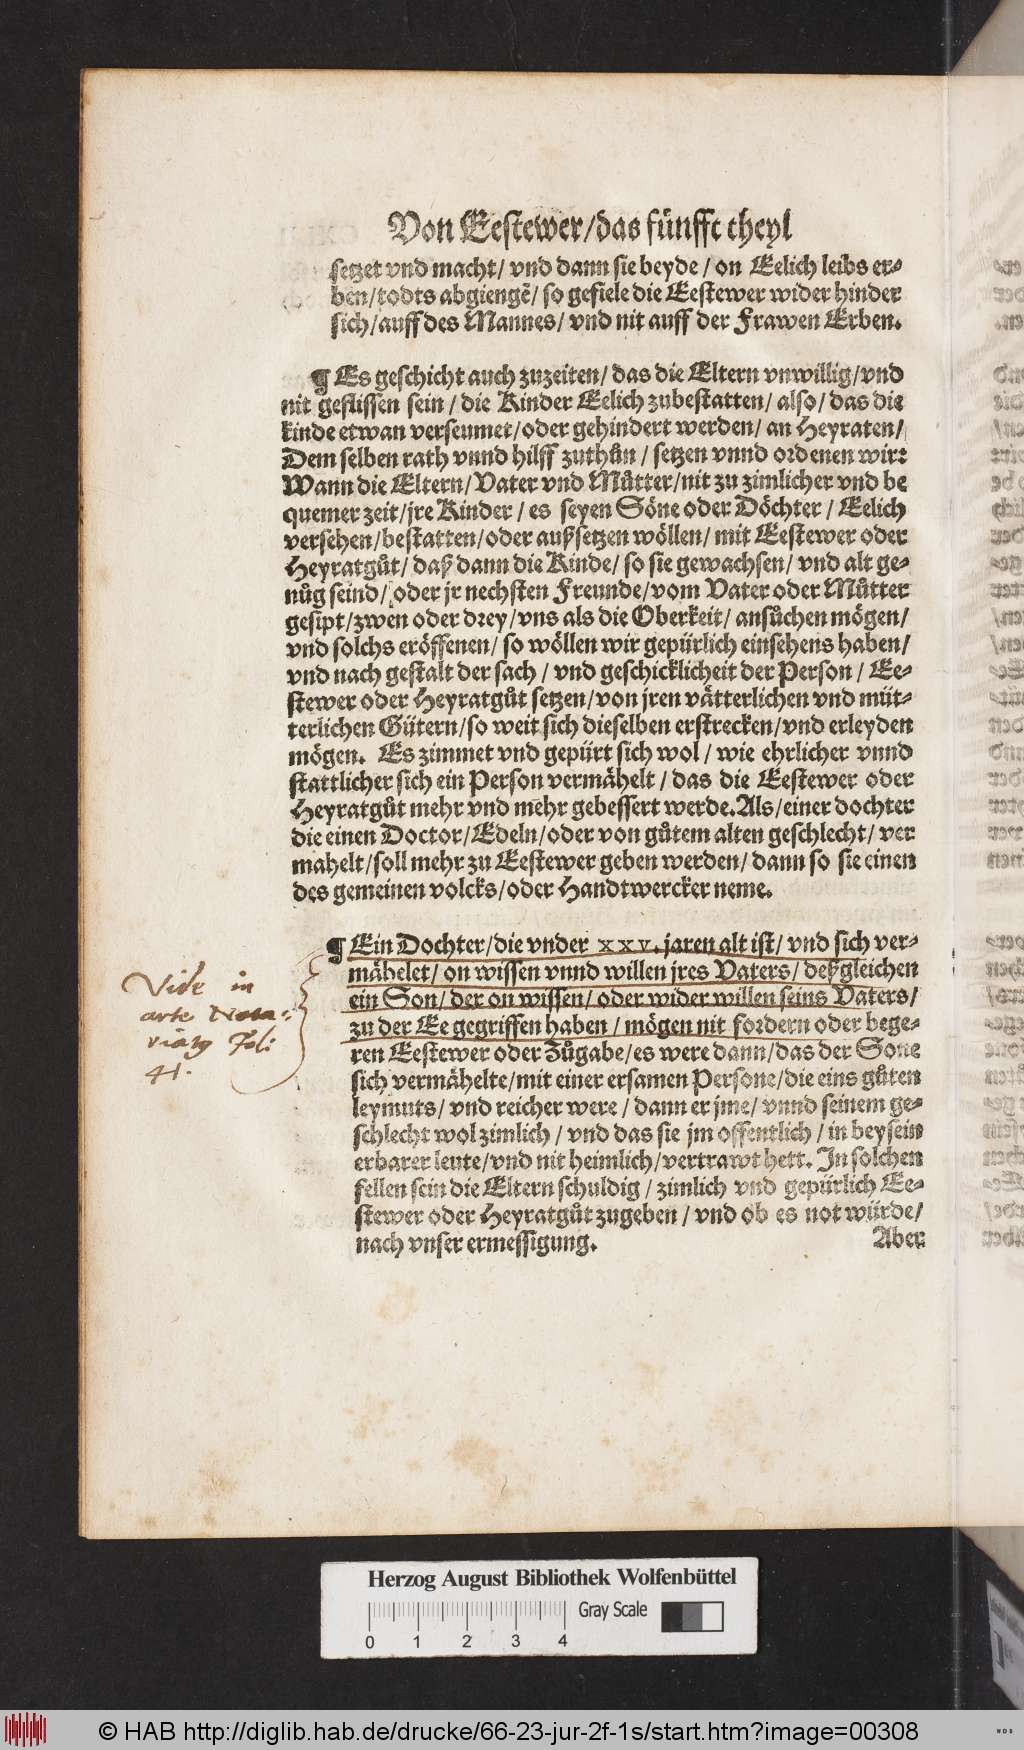 Von Eestewer/das fünfft theyl
setzet vnd macht/ vnd dann sie beyde/ on Eelich leibs er-
ben/todts abgiengẽ/ so gefiele die Eestewer wider hinder
sich/auff des Mannes/ vnd nit auff der Frawen Erben.
¶ Es geschicht auch zuzeiten/ das die Eltern vnwillig/vnd
nit geflissen sein/ die Kinder Eelich zubestatten/ also/ das die
kinde etwan verseumet/oder gehindert werden/ an Heyraten/
Dem selben rath vnnd hilff zuthůn/ setzen vnnd ordenen wir:
Wann die Eltern/ Vater vnd Můtter/nit zu zimlicher vnd be
quemer zeit/jre Kinder/ es seyen Söne oder Döchter/ Eelich
versehen/bestatten/oder außsetzen wöllen/ mit Eestewer oder
Heyratgůt/ daß dann die Kinde/ so sie gewachsen/ vnd alt ge-
nůg seind/ oder jr nechsten Freunde/vom Vater oder Můtter
gesipt/zwen oder drey/vns als die Oberkeit/ ansůchen mögen/
vnd solchs eröffenen/ so wöllen wir gepürlich einsehens haben/
vnd nach gestalt der sach/ vnd geschicklicheit der Person/ Ee-
stewer oder Heyratgůt setzen/von jren vätterlichen vnd müt-
terlichen Gütern/so weit sich dieselben erstrecken/vnd erleyden
mögen. Es zimmet vnd gepürt sich wol/ wie ehrlicher vnnd
stattlicher sich ein Person vermähelt/ das die Eestewer oder
Heyratgůt mehr vnd mehr gebessert werde. Als/einer dochter
die einen Doctor/Edeln/oder von gůtem alten geschlecht/ ver
mahelt/soll mehr zu Eestewer geben werden/ dann so sie einen
des gemeinen volcks/oder Handtwercker neme.
¶ Ein Dochter/die vnder xxv. jaren alt ist/ vnd sich ver-
mähelet/ on wissen vnnd willen jres Vaters/ deßgleichen
ein Son/ der on wissen/ oder wider willen seins Vaters/
zu der Ee gegriffen haben/ mögen nit fordern oder bege-
ren Eestewer oder Zůgabe/es were dann/das der Sone
sich vermähelte/mit einer ersamen Persone/die eins gůten
leymuts/ vnd reicher were/ dann er jme/ vnnd seinem ge-
schlecht wol zimlich/ vnd das sie jm offentlich/ in beysein
erbarer leute/vnd nit heimlich/vertrawt hett. In solchen
fellen sein die Eltern schuldig/ zimlich vnd gepürlich Ee-
stewer oder Heyratgůt zugeben/ vnd ob es not würde/
nach vnser ermessigung.
Aber
Vide in
arte Nota-
Foli
41.
Herzog August Bibliothek Wolfenbüttel
Gray Scale
0 1 2 3 4
© HAB http://diglib.hab.de/drucke/66-23-jur-2f-1s/start.htm?image=00308